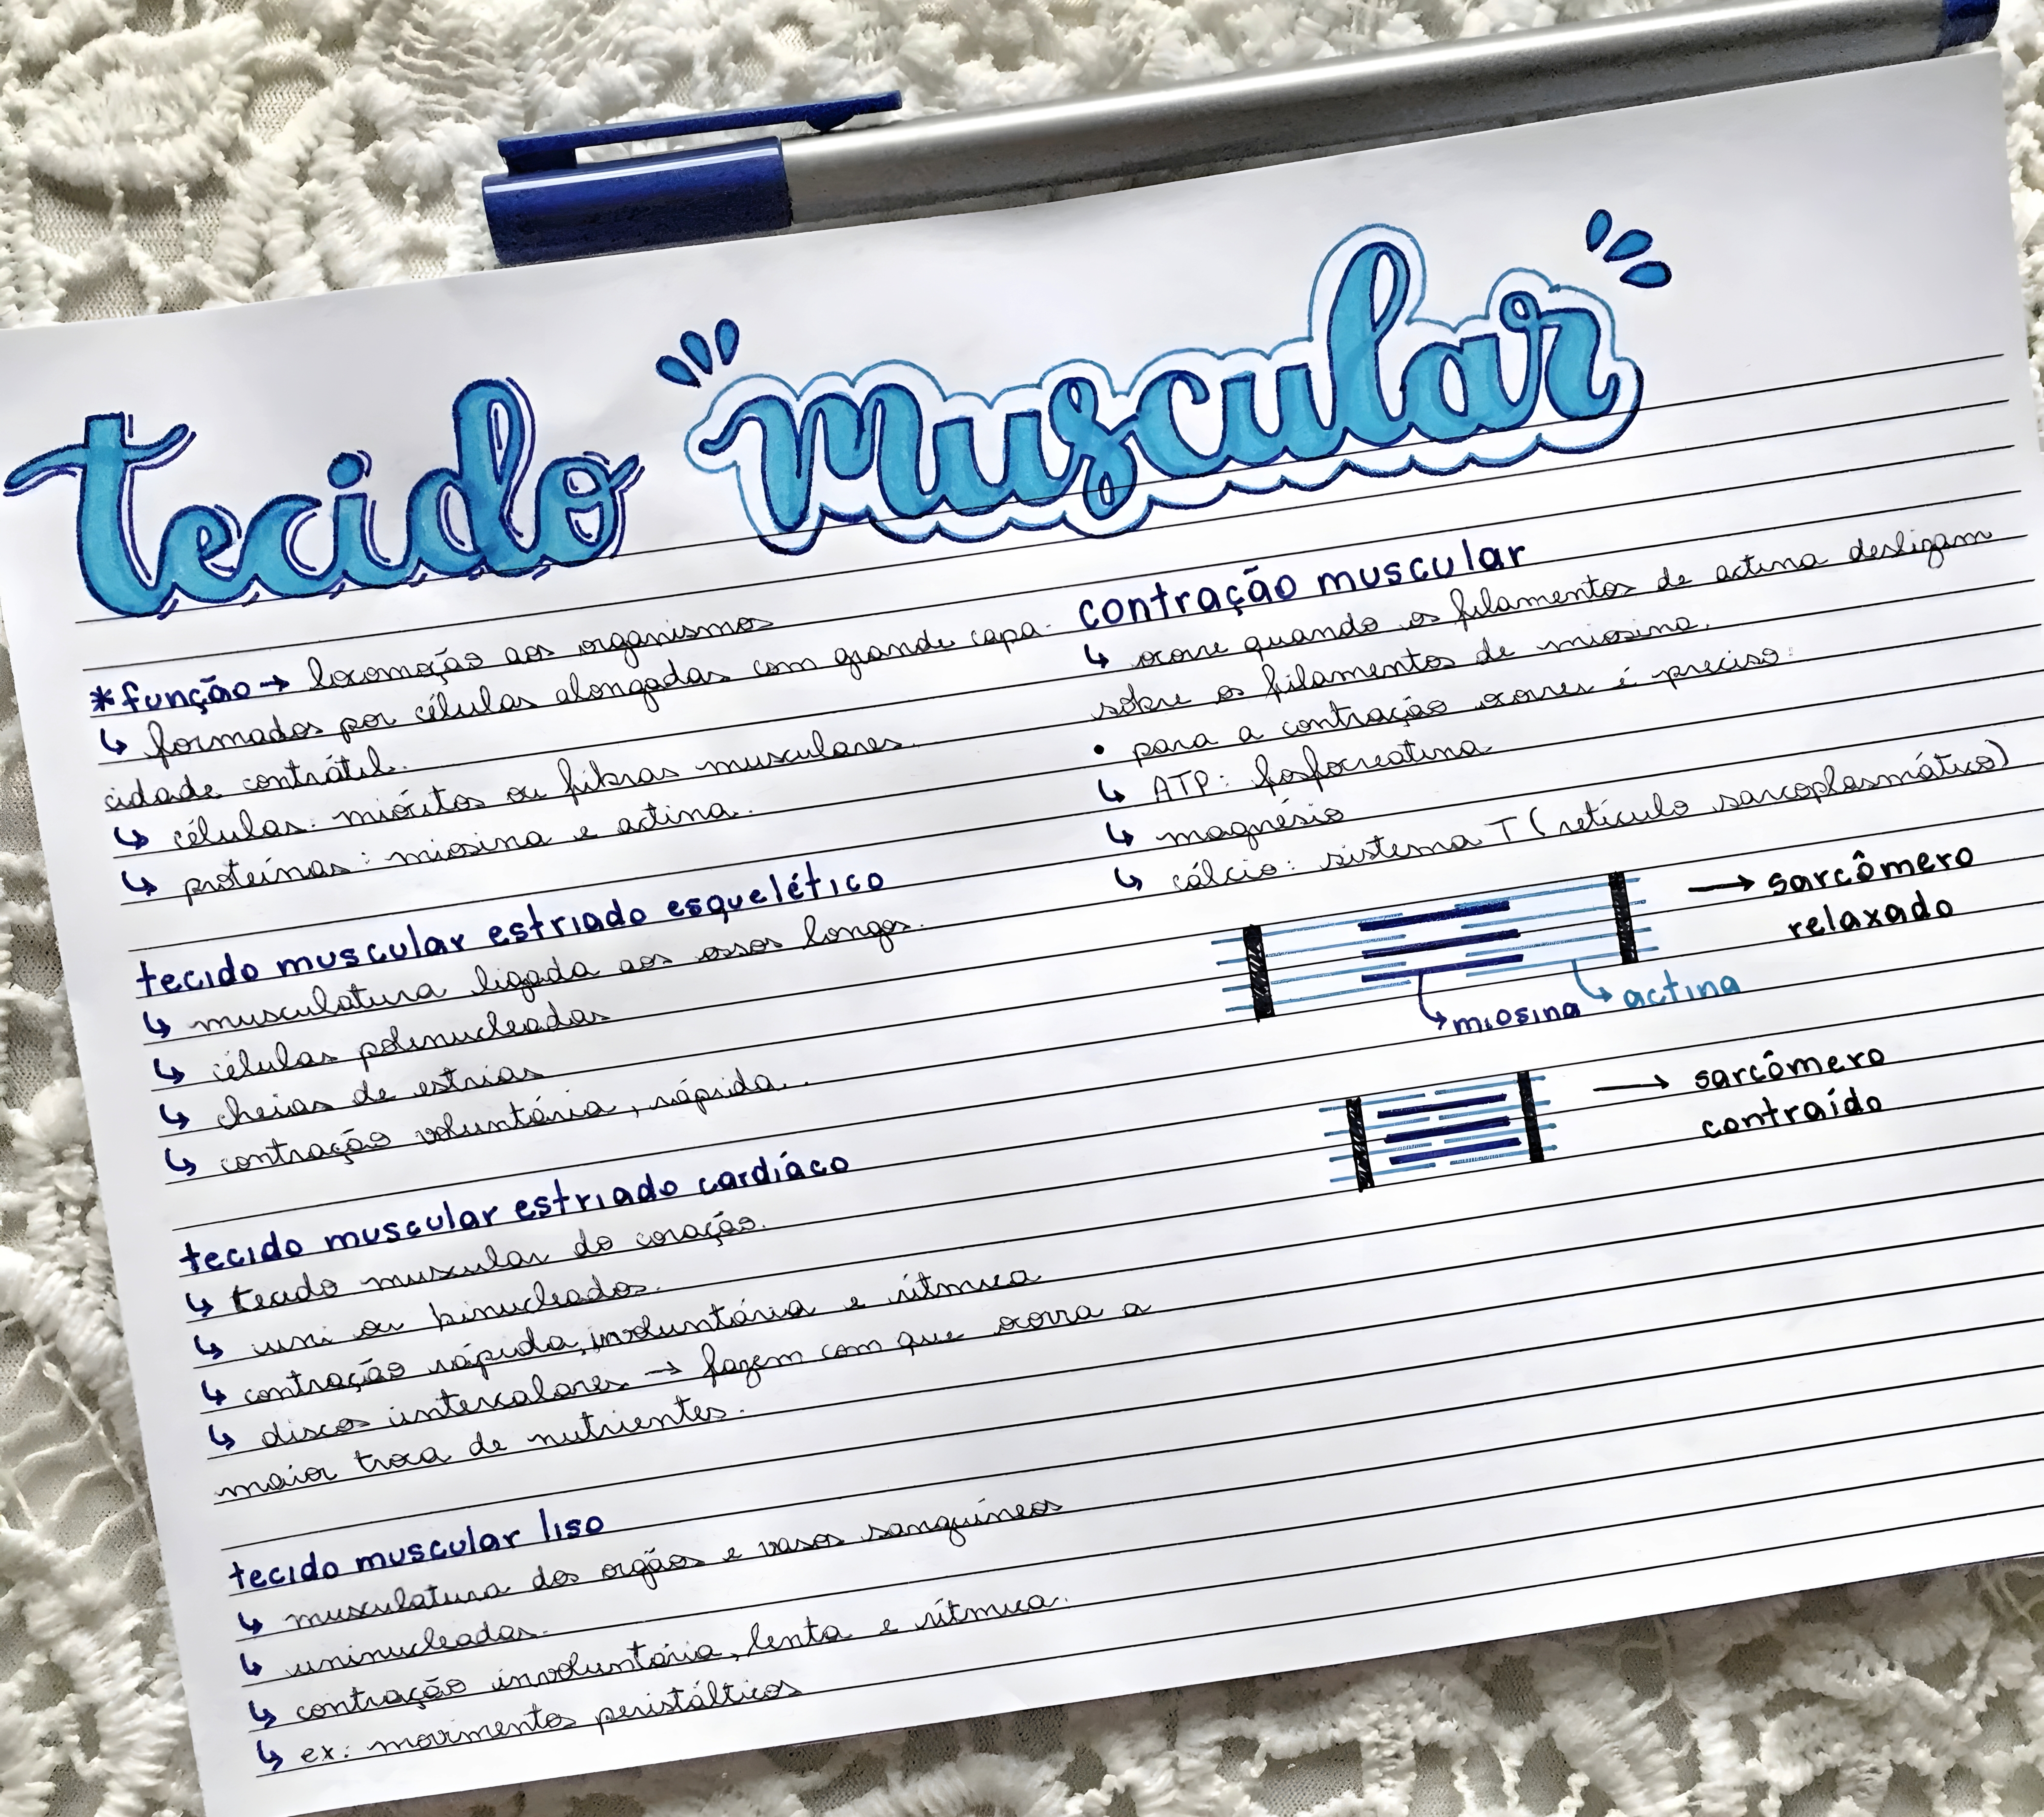 tecido muscular
*função → locomoção aos organismos
↳ formados por células alongadas com grande capa-
cidade contrátil.
↳ células: miócitos ou fibras musculares.
↳ proteínas: miosina e actina.
tecido muscular estriado esquelético
↳ musculatura ligada aos ossos longos.
↳ células polinucleadas
↳ cheias de estrias
↳ contração voluntária, rápida.
tecido muscular estriado cardíaco
↳ tecido muscular do coração.
↳ uni ou binucleados.
↳ contração rápida, involuntária e rítmica
↳ discos intercalares → fazem com que ocorra a
maior troca de nutrientes.
tecido muscular liso
↳ musculatura dos orgãos e vasos sanguíneos
↳ uninucleadas.
↳ contração involuntária, lenta e rítmica.
↳ ex: movimentos peristálticos
contração muscular
↳ ocorre quando os filamentos de actina deslizam
sobre os filamentos de miosina.
• para a contração ocorrer é preciso:
↳ ATP: fosfocreatina
↳ magnésio
↳ cálcio: sistema T (retículo sarcoplasmático)
→ sarcômero
relaxado
↳ miosina ↳ actina
→ sarcômero
contraído